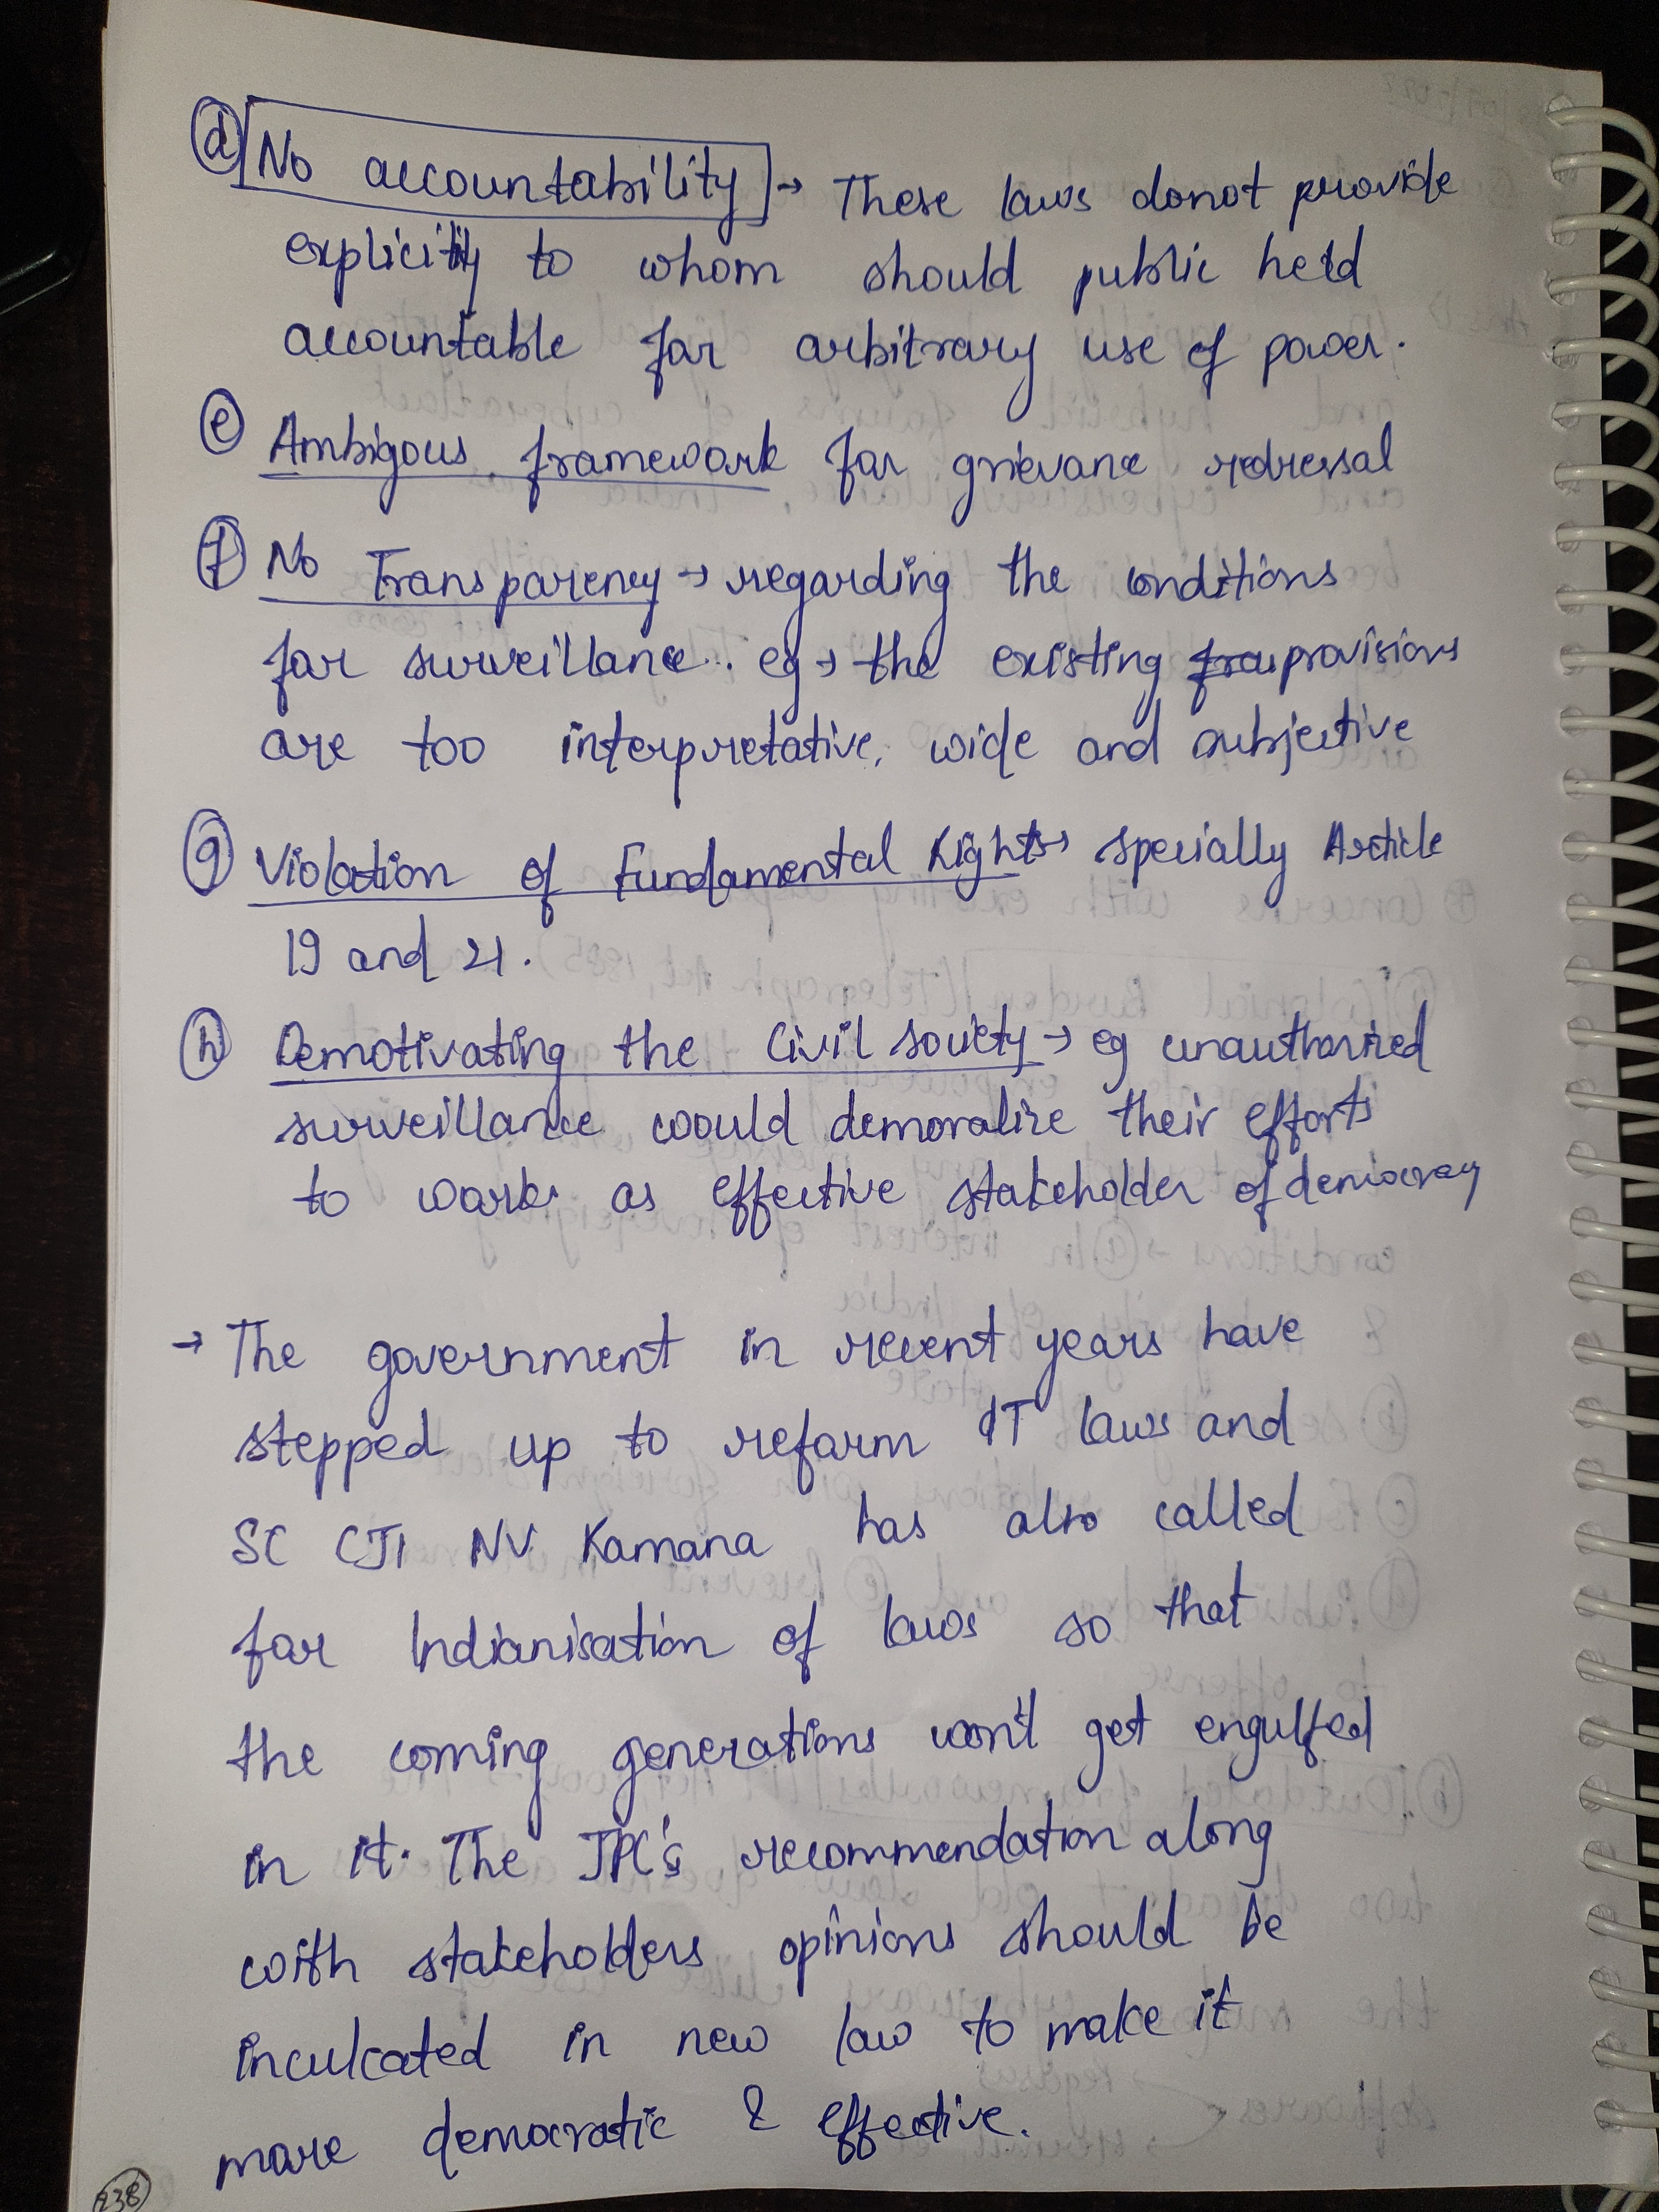 (d) No accountability → These laws donot provide
explicitly to whom should public held
accountable for arbitrary use of power.
(e) Ambigous framework for grievance redressal
(f) No Transparency → regarding the conditions
for surveillance. eg → the existing provisions
are too interpretative, wide and subjective
(g) Violation of Fundamental Rights → specially Article
19 and 21.
(h) Demotivating the Civil society → eg unauthorized
surveillance would demoralize their efforts
to work as effective stakeholder of democracy
→ The government in recent years have
stepped up to reform IT laws and
SC CJI NV Ramana has also called
for Indianisation of laws so that
the coming generations won't get engulfed
in it. The JPC's recommendation along
with stakeholders opinions should be
inculcated in new law to make it
more democratic & effective.
238